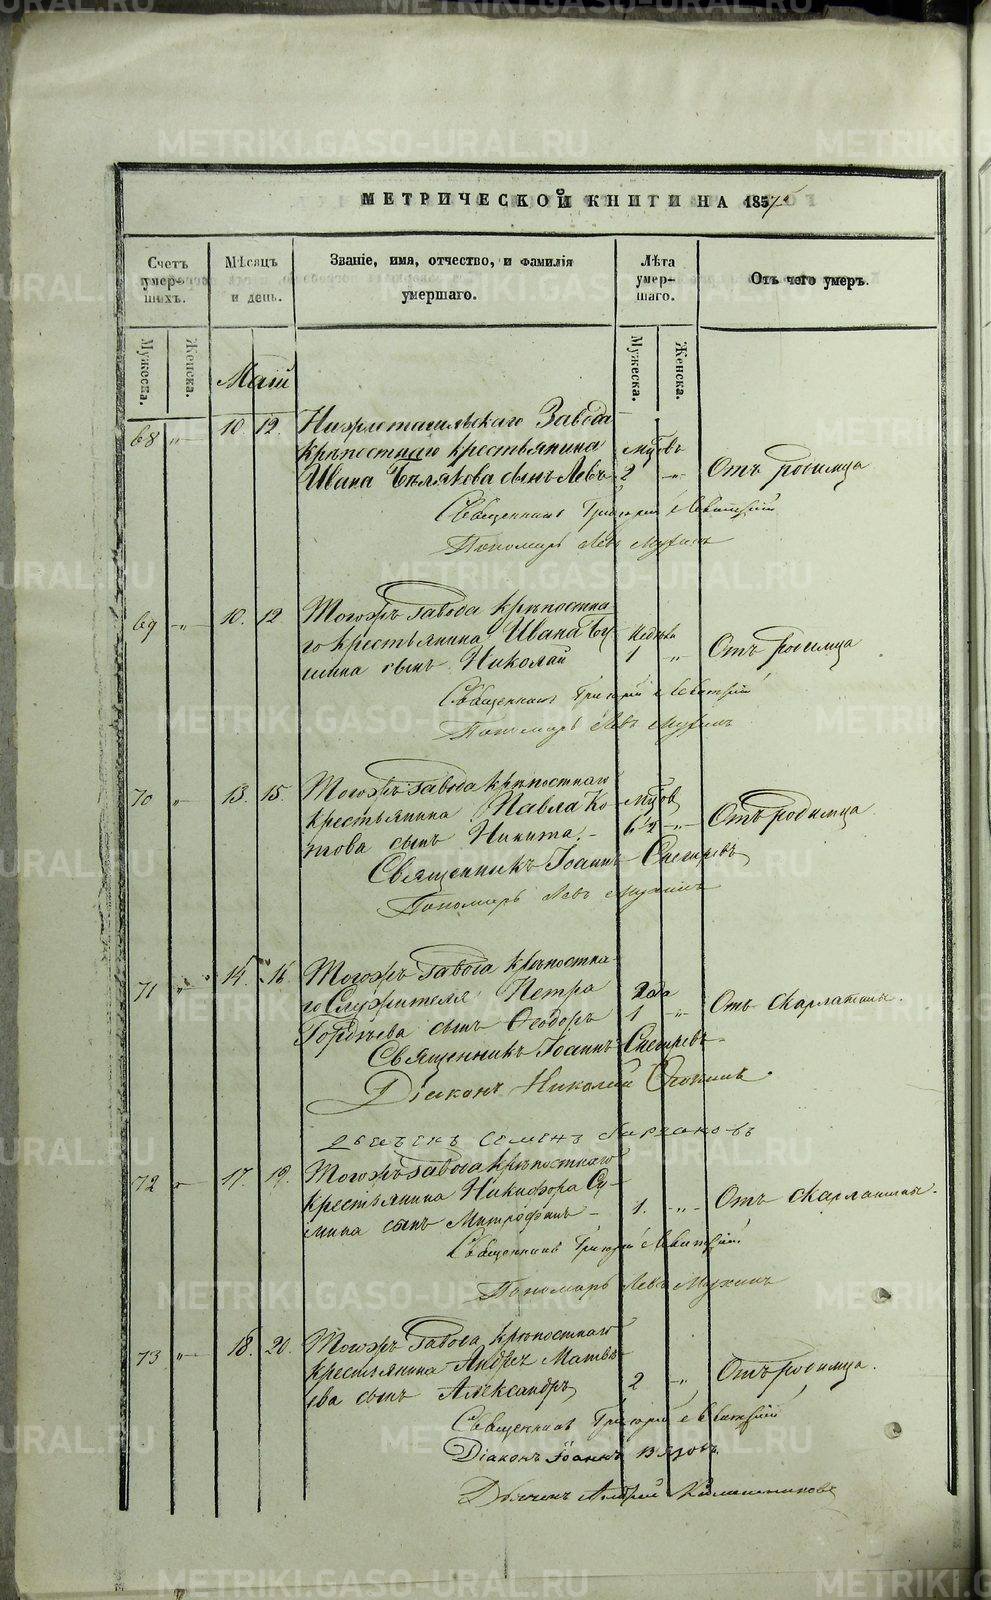 МЕТРИЧЕСКОЙ КНИГИ НА 1857
Счетъ умер-шихъ.
Мѣсяцъ и день.
Званіе, имя, отчество, и фамилія умершаго.
Лѣта умер-шаго.
Отъ чего умеръ.
Мужеска. Женска.
Мужеска. Женска.
Маій
68 „ 10. 12. Нижнетагильскаго Завода
крѣпостнаго крестьянина мѣсцовъ
Ивана Бѣлякова сынъ Левъ 2 „ Отъ родимца
Священникъ Григорій Левитскій
Пономарь Левъ Мухинъ
69 „ 10. 12 Тогожъ Завода крѣпостна-
го крестьянина Ивана недѣли
шина сынъ Николай 1 „ Отъ родимца
Священникъ Григорій Левитскій
Пономарь Левъ Мухинъ
70 „ 13. 15. Тогожъ Завода крѣпостнаго
крестьянина Павла Ко-
това сынъ Никита. 6 1/2 „ Отъ родимца
Священникъ Іоаннъ Снегиревъ
Пономарь Левъ Мухинъ
71 „ 14. 16 Тогожъ Завода крѣпостна-
го Служителя Петра года
Гордѣева сынъ Ѳеодоръ 1 „ Отъ скарлатины.
Священникъ Іоаннъ Снегиревъ
Діаконъ Николай
Семенъ
72 „ 17. 19. Тогожъ Завода крѣпостнаго
крестьянина Никифора Су-
мина сынъ Митрофанъ 1. „ Отъ скарлатины.
Священникъ Григорій Левитскій
Пономарь Левъ Мухинъ
73 „ 18. 20. Тогожъ Завода крѣпостнаго
крестьянина Андрея Матвѣ-
ева сынъ Александръ 2 „ Отъ родимца.
Священникъ Григорій Левитскій
Діаконъ Іоаннъ
Дьячекъ Андрей
METRIKI.GASO-URAL.RU